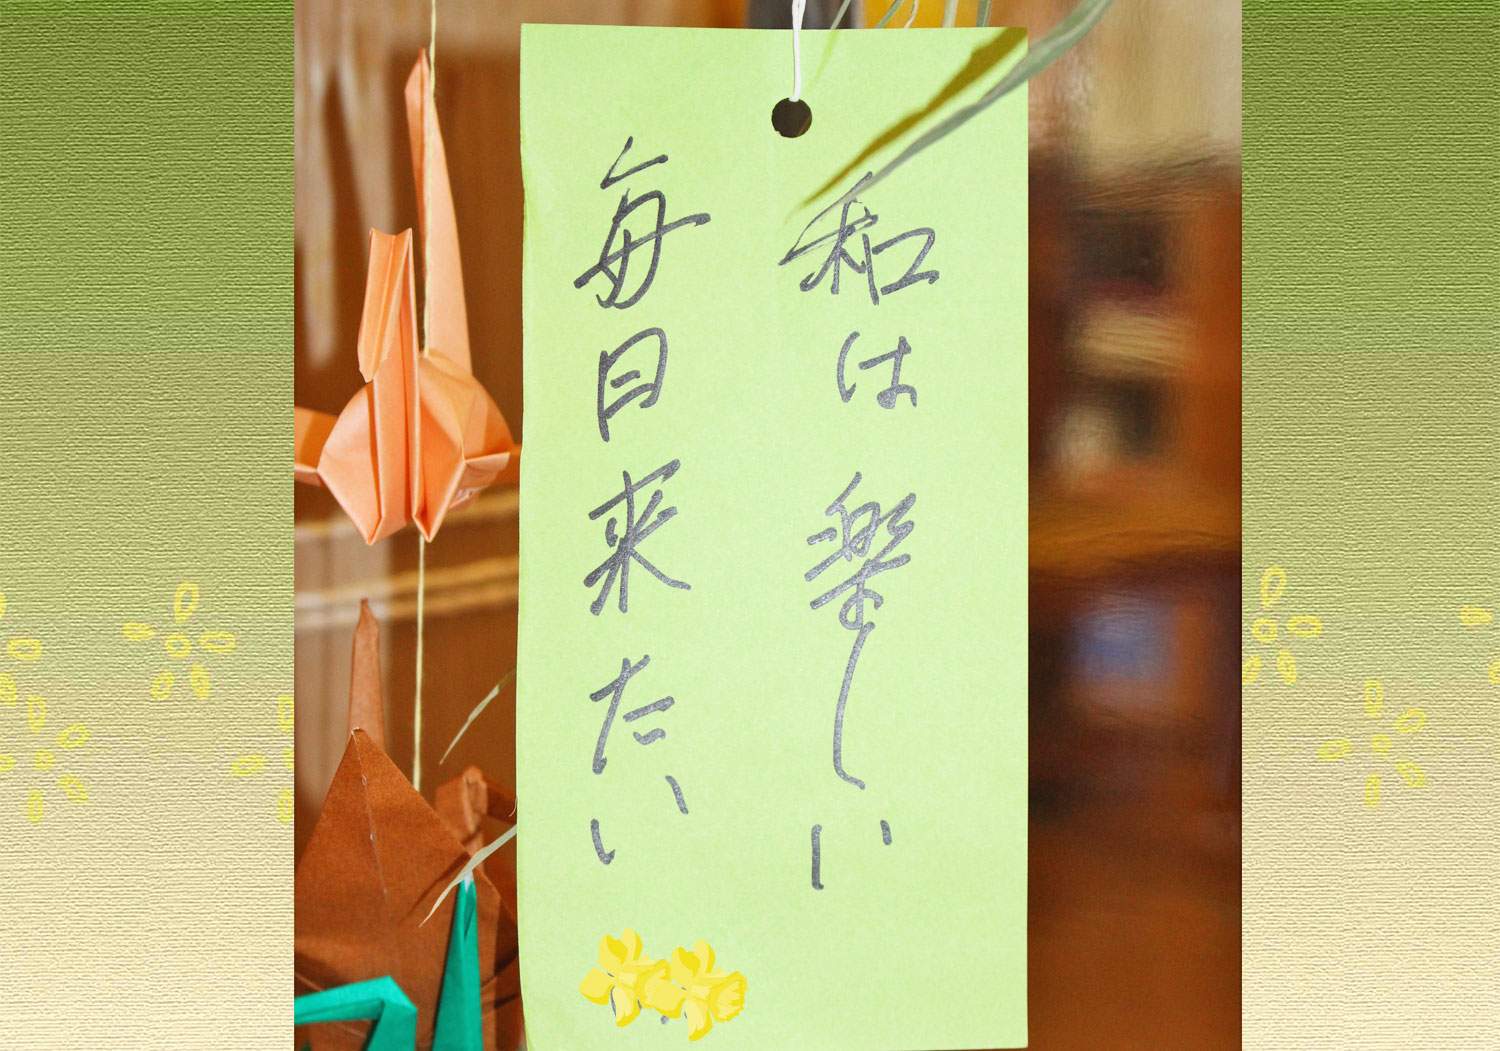 和は楽しい
毎日来たい